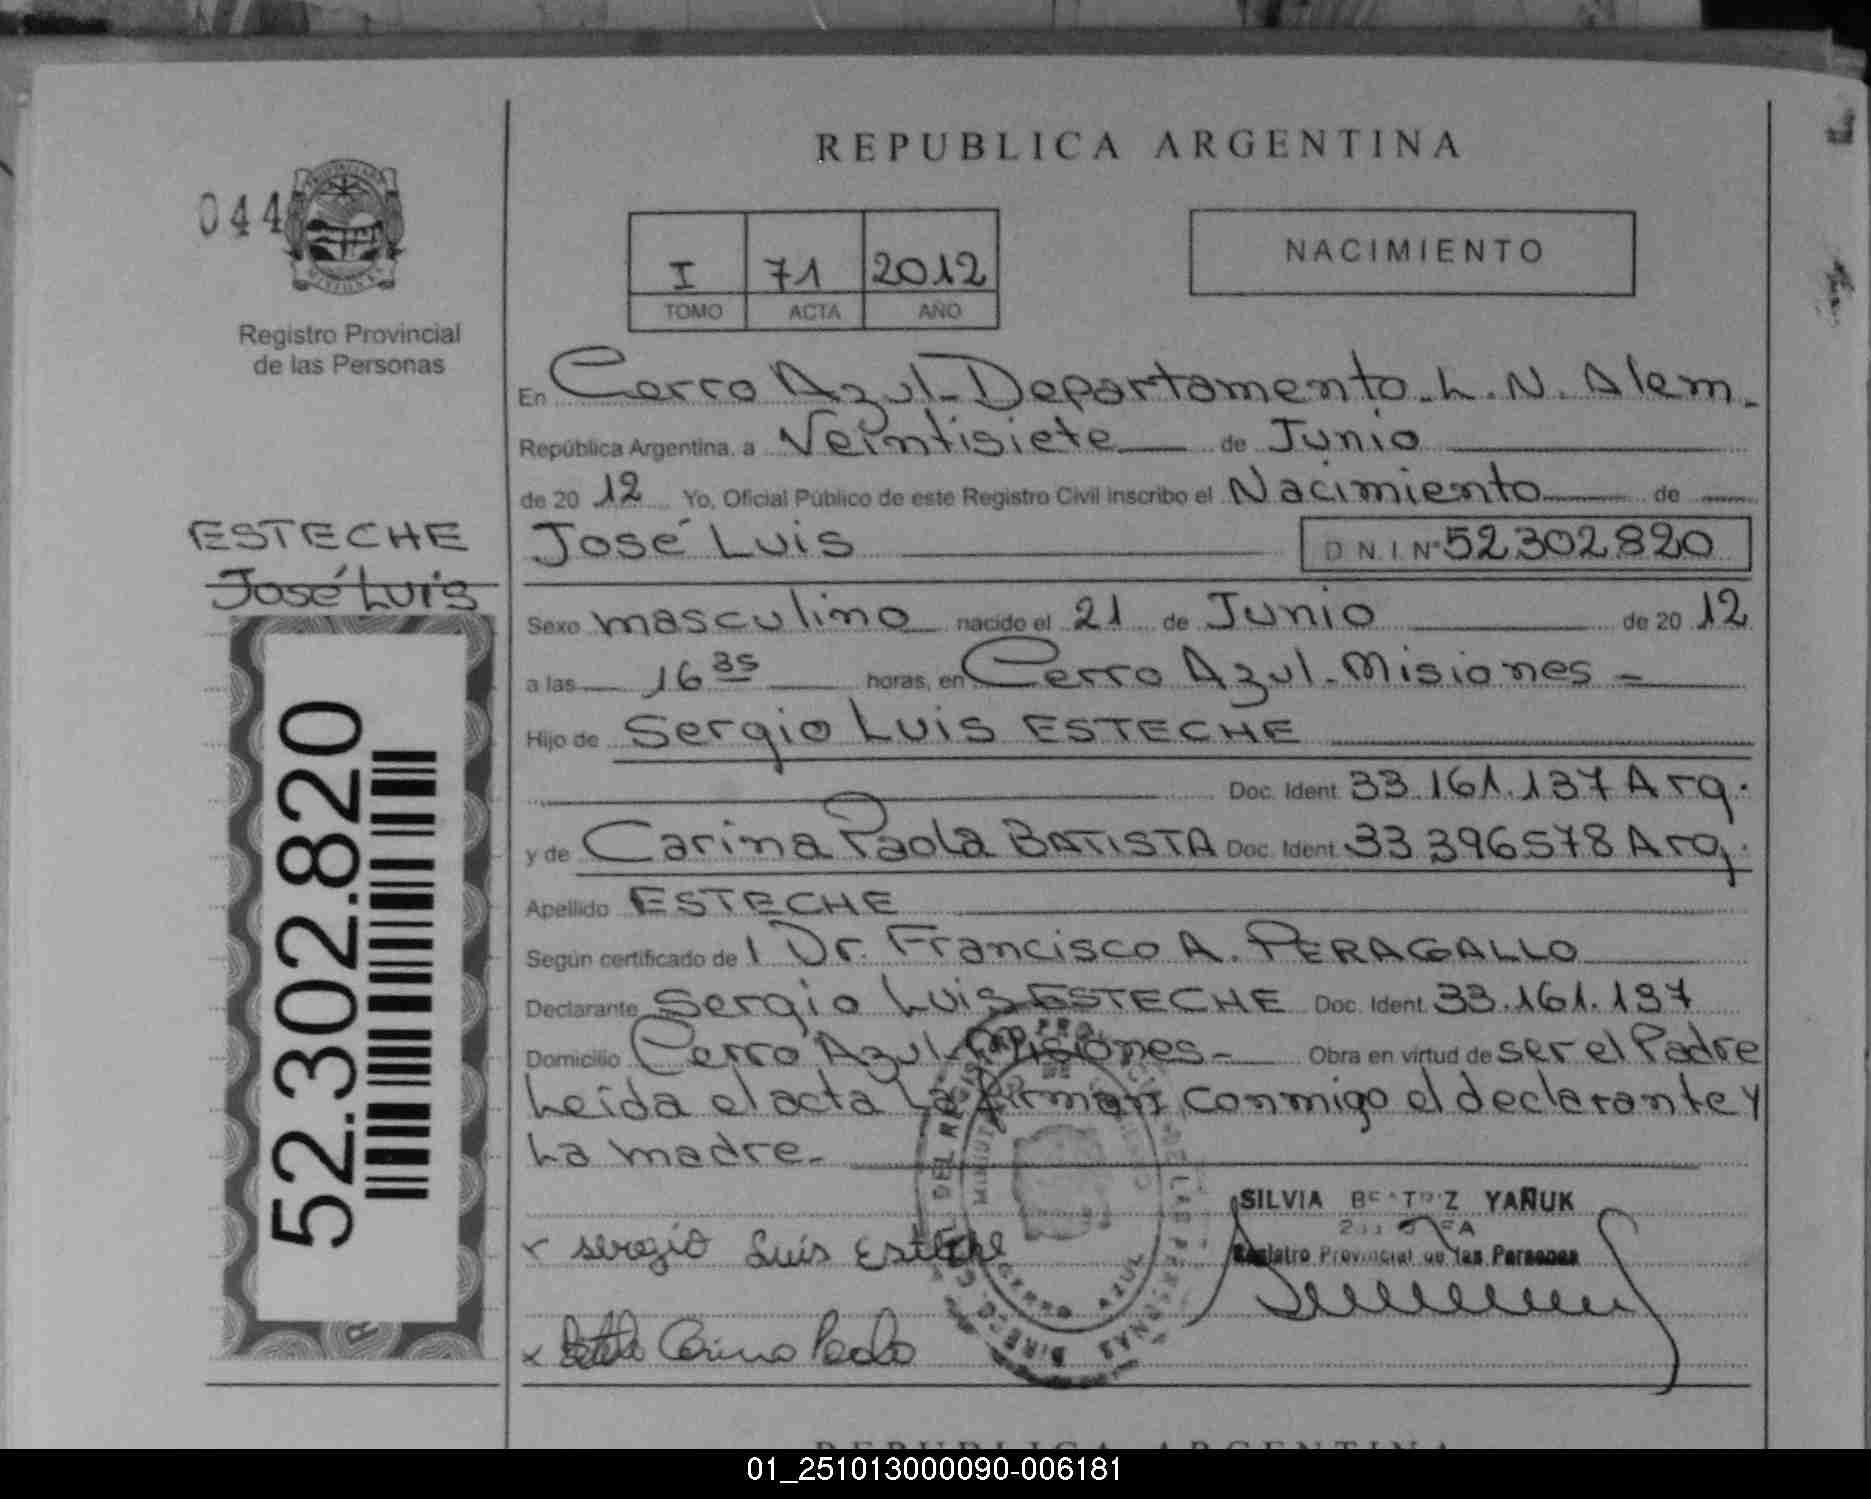 REPUBLICA ARGENTINA
044
Registro Provincial
de las Personas
I 71 2012
TOMO ACTA AÑO
NACIMIENTO
En Cerro Azul - Departamento - L. N. Alem -
República Argentina, a Veintisiete de Junio
de 20 12 Yo, Oficial Público de este Registro Civil inscribo el Nacimiento de
José Luis D N. I. Nº 52302820
ESTECHE
José Luis
52.302.820
Sexo masculino nacido el 21 de Junio de 20 12
a las 16 35 horas, en Cerro Azul - Misiones -
Hijo de Sergio Luis ESTECHE
Doc. Ident. 33.161.137 Arg.
y de Carina Paola BATISTA Doc. Ident. 33.396578 Arg.
Apellido ESTECHE
Según certificado de Dr. Francisco A. PERAGALLO
Declarante Sergio Luis ESTECHE Doc. Ident. 33.161.137
Domicilio Cerro Azul - Misiones - Obra en virtud de ser el Padre
Leída el acta la firman conmigo el declarante y
la madre.-
SILVIA BEATRIZ YAÑUK
Registro Provincial de las Personas
x sergio Luis Esteche
CERRO AZUL
x Carina Paola
REPUBLICA ARGENTINA
01_251013000090-006181